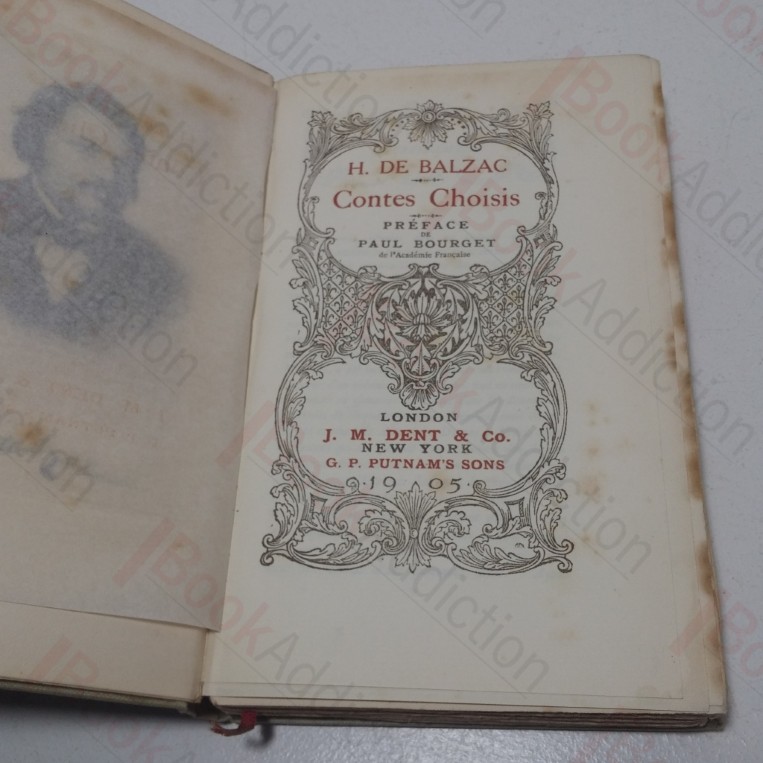 H. DE BALZAC
Contes Choisis
PRÉFACE
DE
PAUL BOURGET
de l'Académie Française
LONDON
J. M. DENT & Co.
NEW YORK
G. P. PUTNAM'S SONS
·19 05·
BookAddiction